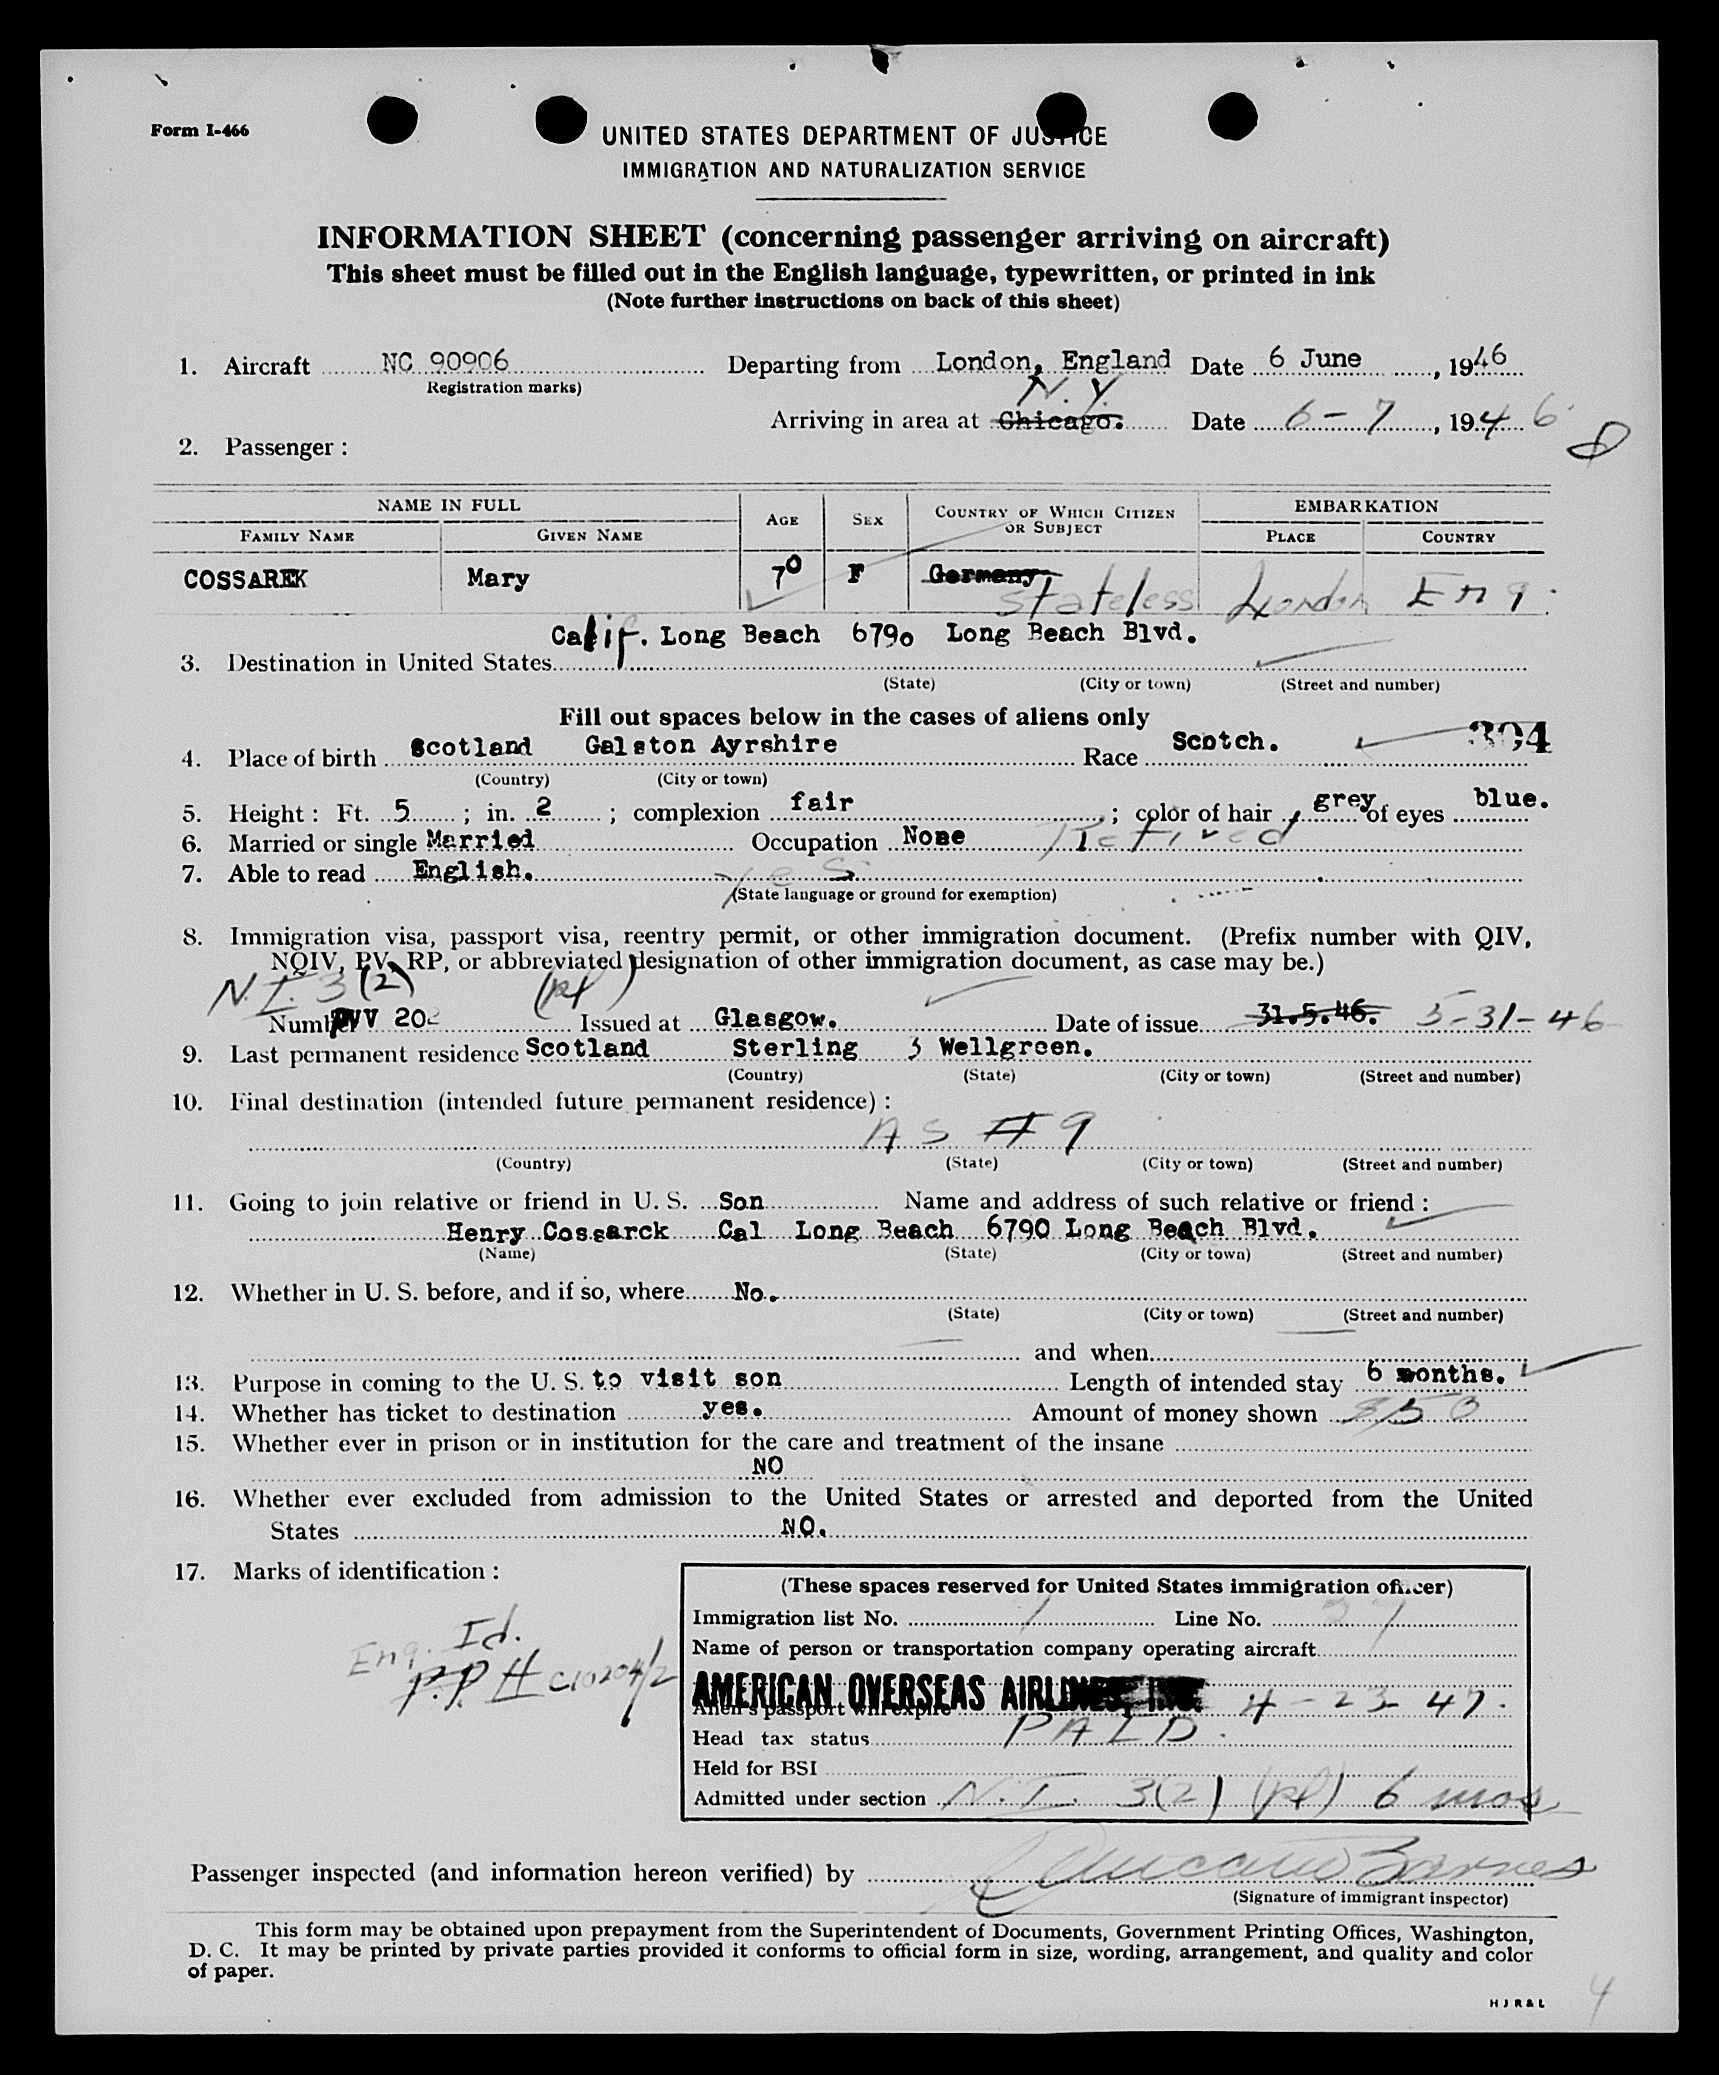 Form I-466
UNITED STATES DEPARTMENT OF JUSTICE
IMMIGRATION AND NATURALIZATION SERVICE
INFORMATION SHEET (concerning passenger arriving on aircraft)
This sheet must be filled out in the English language, typewritten, or printed in ink
(Note further instructions on back of this sheet)
1. Aircraft NC 90906 Departing from London, England Date 6 June, 1946
Registration marks)
N.Y.
Arriving in area at Chicago. Date 6-7, 1946
2. Passenger :
NAME IN FULL AGE SEX COUNTRY OF WHICH CITIZEN OR SUBJECT EMBARKATION
FAMILY NAME GIVEN NAME PLACE COUNTRY
COSSAREK Mary 70 F Germany,
stateless London Eng.
Calif. Long Beach 6790 Long Beach Blvd.
3. Destination in United States
(State) (City or town) (Street and number)
Fill out spaces below in the cases of aliens only
304
4. Place of birth Scotland Galston Ayrshire Race Scotch.
(Country) (City or town)
5. Height : Ft. 5 ; in. 2 ; complexion fair ; color of hair grey of eyes blue.
6. Married or single Married Occupation None Retired
7. Able to read English. Yes
(State language or ground for exemption)
8. Immigration visa, passport visa, reentry permit, or other immigration document. (Prefix number with QIV,
NQIV, PV, RP, or abbreviated designation of other immigration document, as case may be.)
N.I. 3 (2) (pl)
Number PVV 202 Issued at Glasgow. Date of issue 31.5.46. 5-31-46
9. Last permanent residence Scotland Sterling 3 Wellgreen.
(Country) (State) (City or town) (Street and number)
10. Final destination (intended future permanent residence) :
AS # 9
(Country) (State) (City or town) (Street and number)
11. Going to join relative or friend in U. S. Son Name and address of such relative or friend :
Henry Cossarck Cal Long Beach 6790 Long Beach Blvd.
(Name) (State) (City or town) (Street and number)
12. Whether in U. S. before, and if so, where No.
(State) (City or town) (Street and number)
and when
13. Purpose in coming to the U. S. to visit son Length of intended stay 6 months.
14. Whether has ticket to destination yes. Amount of money shown $50
15. Whether ever in prison or in institution for the care and treatment of the insane
NO
16. Whether ever excluded from admission to the United States or arrested and deported from the United
States NO.
17. Marks of identification :
Eng. Id.
P.P. # C10204/2
(These spaces reserved for United States immigration officer)
Immigration list No. 1 Line No. 27
Name of person or transportation company operating aircraft
AMERICAN OVERSEAS AIRLINES, INC.
Alien's passport will expire 4-23-47.
Head tax status PAID.
Held for BSI
Admitted under section N.I. 3(2) (pl) 6 mos
Passenger inspected (and information hereon verified) by
(Signature of immigrant inspector)
This form may be obtained upon prepayment from the Superintendent of Documents, Government Printing Offices, Washington,
D. C. It may be printed by private parties provided it conforms to official form in size, wording, arrangement, and quality and color
of paper.
H J R & L
4